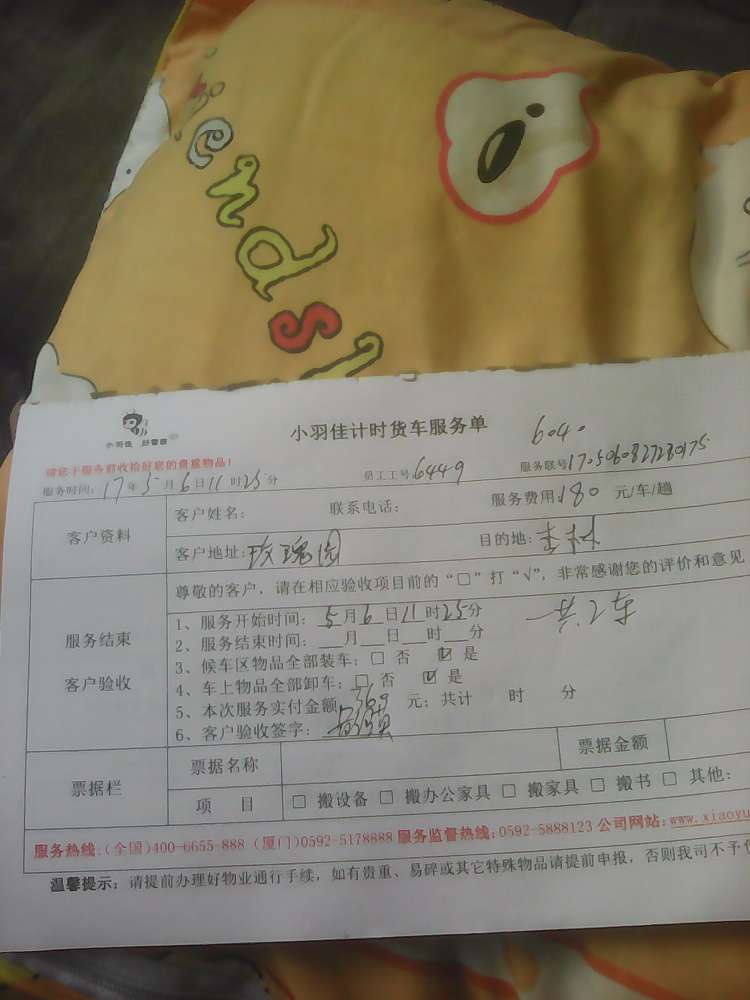 ends
小羽佳 好管家
小羽佳计时货车服务单
6040
请您于服务前收拾好您的贵重物品!
服务时间:17年5月6日11时25分 员工工号6449 服务联号
客户资料
客户姓名: 联系电话: 服务费用180元/车/趟
客户地址:玫瑰园 目的地:
服务结束
客户验收
尊敬的客户,请在相应验收项目前的“□”打“√”,非常感谢您的评价和意见
1、服务开始时间:5月6日11时25分
2、服务结束时间:__月__日__时__分
3、候车区物品全部装车:□ 否 ☑ 是
4、车上物品全部卸车:□ 否 ☑ 是
5、本次服务实付金额 元;共计 时 分
6、客户验收签字:
票据栏
票据名称 票据金额
项 目 □ 搬设备 □ 搬办公家具 □ 搬家具 □ 搬书 □ 其他:
服务热线:(全国)400-6655-888 (厦门)0592-5178888 服务监督热线:0592-5888123 公司网站:www.xiaoyu
温馨提示:请提前办理好物业通行手续,如有贵重、易碎或其它特殊物品请提前申报,否则我司不予